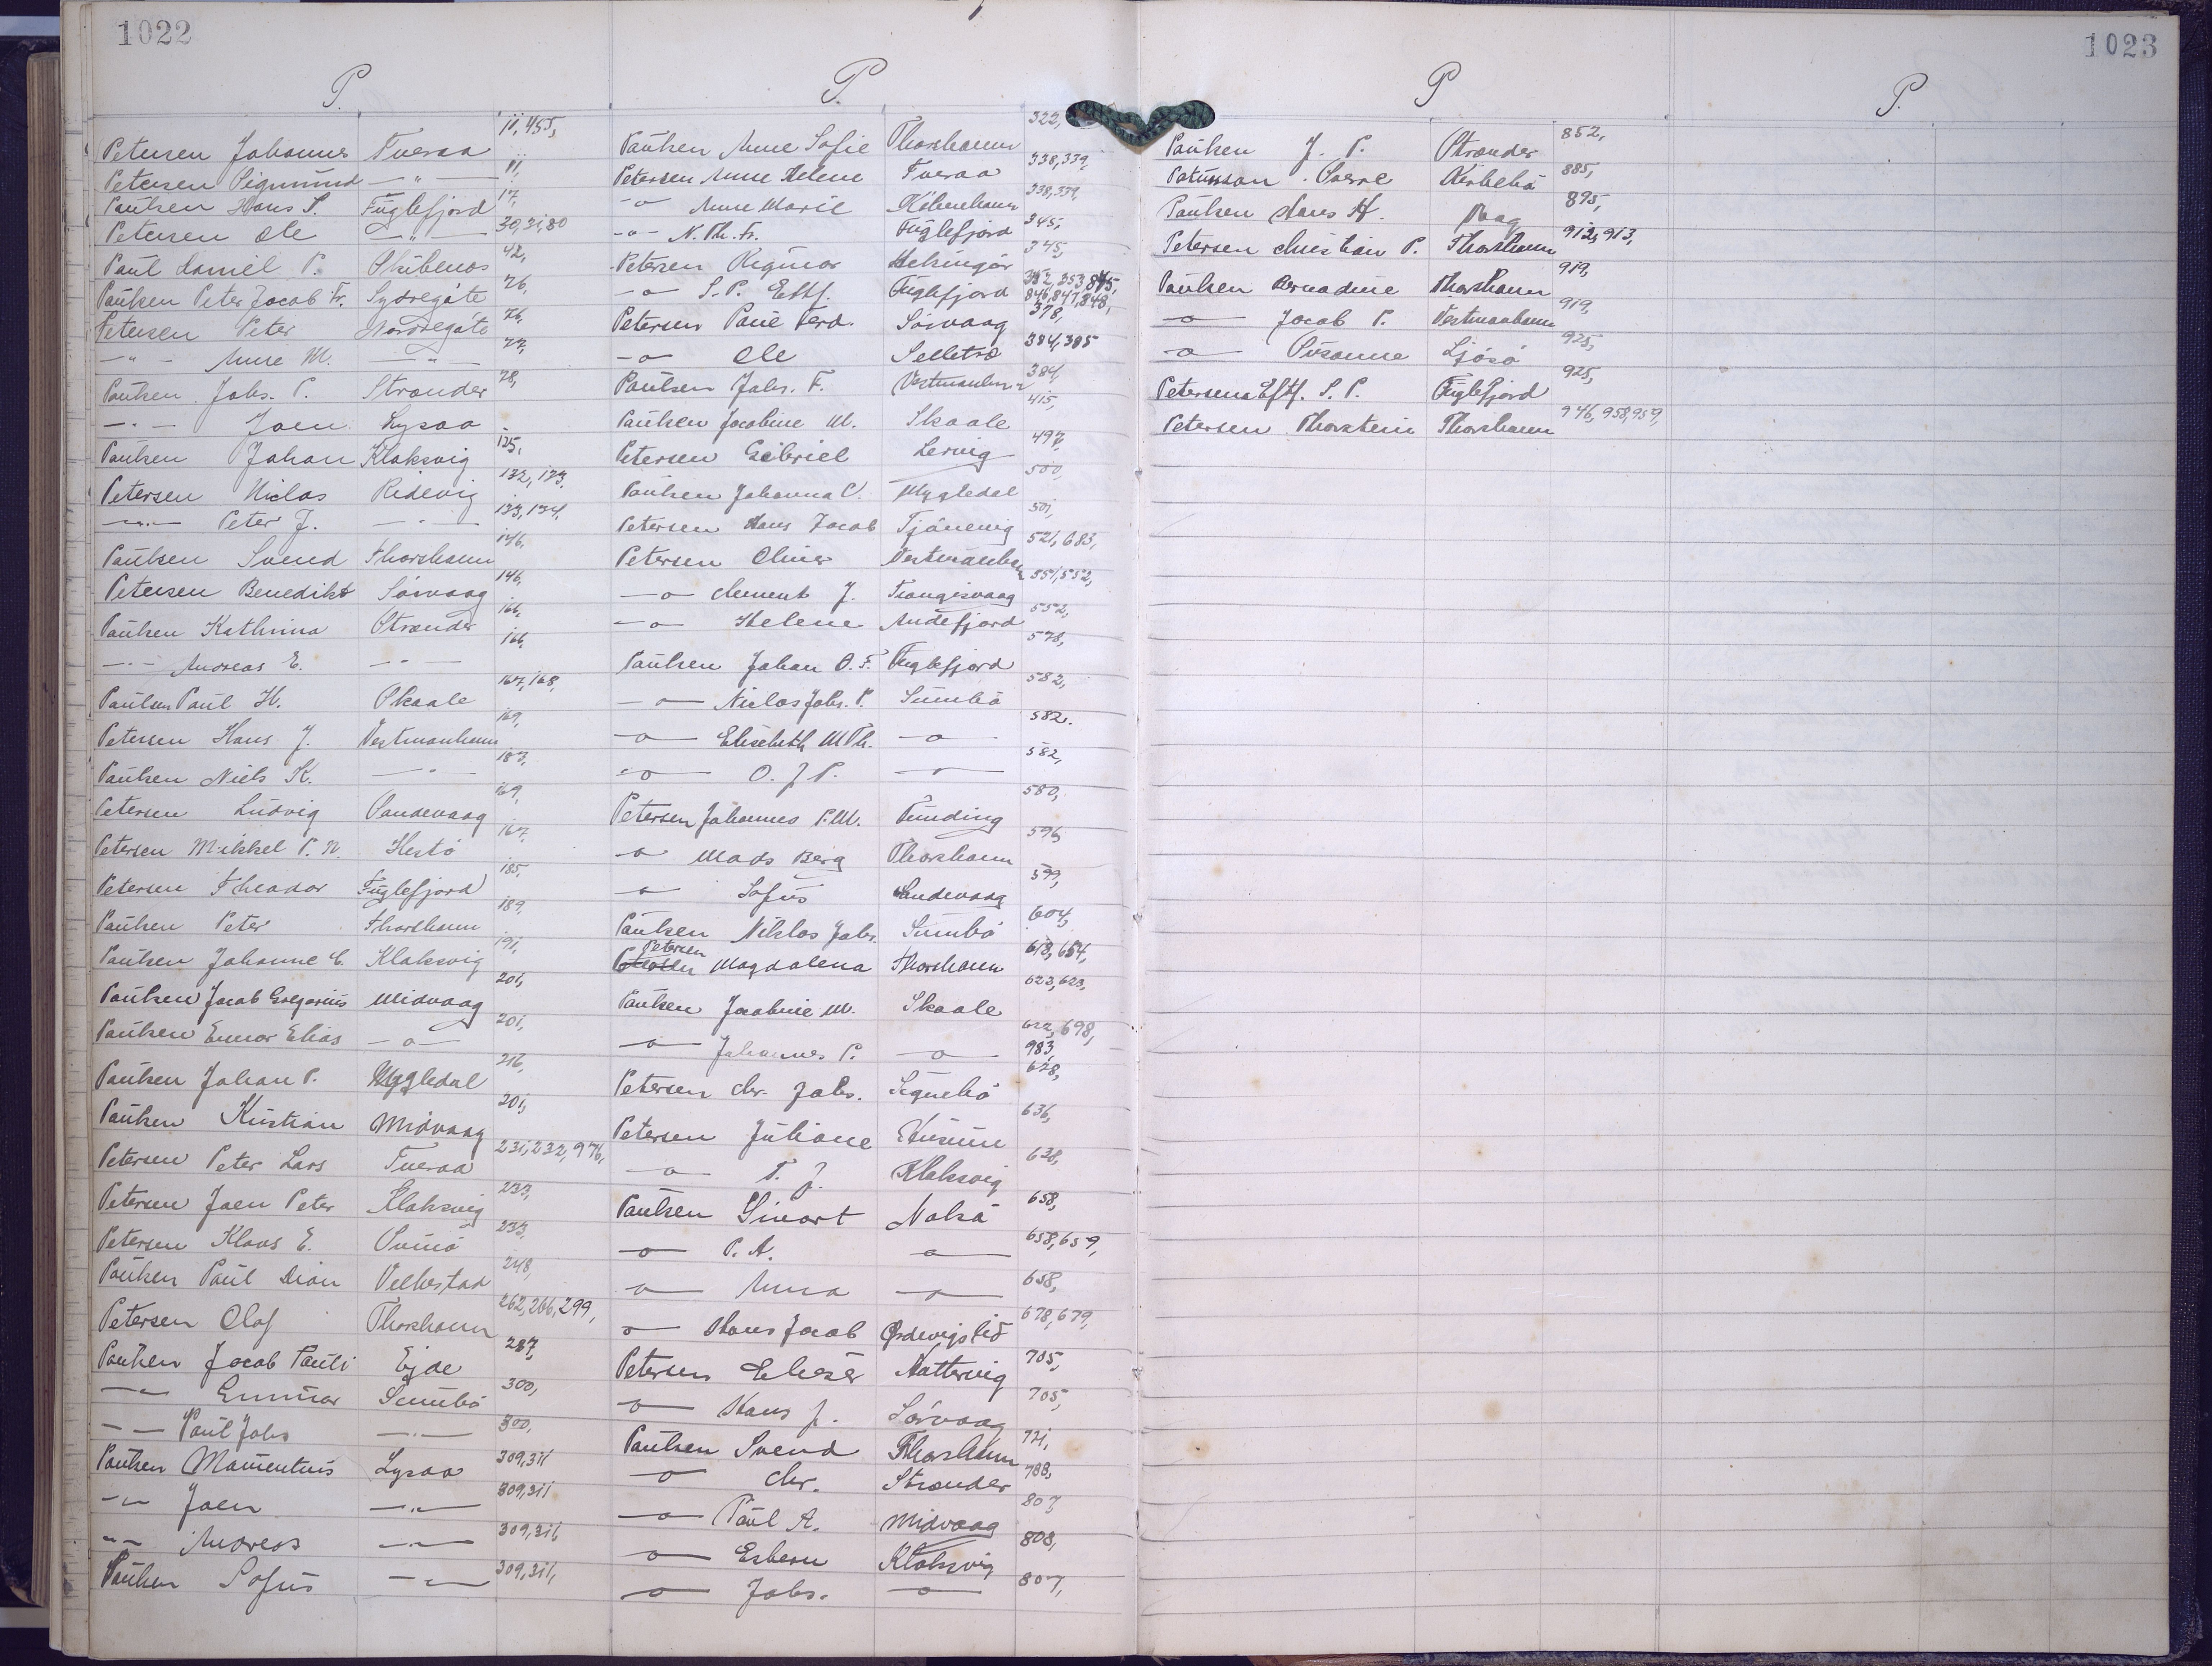 1022
P.
Petersen Johannes Tveraa 11, 455,
Petersen Sigmund — " — 11,
Paulsen Hans P. Fuglefjord 17,
Petersen Ole — " — 30, 31, 80
Paul Daniel P. 42,
Paulsen Peter Jacob Fr. Sydregöte 76,
Petersen Peter Nordregöte 76,
— " — Anne M. — " — 77,
Paulsen Johs. P. Strander 78,
— " — Joen Lysaa
Paulsen Johan Klaksvig 125,
Petersen Niclas Ridevig 132, 133,
— " — Peter J. — " — 133, 134,
Paulsen Svend Thorshavn 146,
Petersen Benedikt Sörvaag 146,
Paulsen Kathrina Strander 166,
— " — Andreas E. — " — 166,
Paulsen Paul H. Skaale 167, 168,
Petersen Hans J. Vestmanhavn 169,
Paulsen Niels K. — " — 183,
Petersen Ludvig Sandevaag 169,
Petersen Mikkel P. N. Hestö 167,
Petersen Theodor Fuglefjord 185,
Paulsen Peter Thorshavn 189,
Paulsen Johanne C. Klaksvig 191,
Paulsen Jacob Gregorius Midvaag 201,
Paulsen Elias — o — 201,
Paulsen Johan P. Mygledal 216,
Paulsen Kristian Midvaag 201,
Petersen Peter Lars Tveraa 231, 232, 976,
Petersen Joen Peter Klaksvig 233,
Petersen Klaus E. Svinö 233,
Paulsen Paul Velbestad 248,
Petersen Olaf Thorshavn 262, 266, 299,
Paulsen Jacob Pauli Ejde 287,
— " — Sumbö 300,
— " — Paul Johs — " — 300,
Paulsen Lysaa 309, 311
— " — Joen — " — 309, 311
— " — Andreas — " — 309, 316
Paulsen Sofus — " — 309, 311,
P.
Paulsen Anne Sofie Thorshavn 322,
Petersen Anne Helene Tveraa 338, 339,
— o — Anne Marie Köbenhavn 338, 339,
— o — N. Th. Fr. Fuglefjord 345,
Petersen Rigmor Helsingör 345,
— o — S. P. Eftf. Fuglefjord 352, 353, 845, 846, 847, 848,
Petersen Poul Ferd. Sörvaag 378,
— o — Ole Selletræ 384, 385
Paulsen Johs. F. Vestmanhavn 384,
Paulsen Jacobine M. Skaale 415,
Petersen Gabriel Lervig 497,
Paulsen Johanna C. Mygledal 500,
Petersen Hans Jacob Tjörnevig 501,
Petersen Oliver Vestmanhavn 521, 683,
— o — Clement J. Trangisvaag 551, 552,
— o — Helene Andefjord 552,
Paulsen Johan O. F. Fuglefjord 578,
— o — Niclas Johs. P. Sumbö 582,
— o — Elisabeth M Th. — o — 582.
— o — O. J P. — " — 582,
Petersen Johannes P. M. Funding 580,
— o — Mads Berg Thorshavn 596,
— o — Sofus Sandevaag 599,
Paulsen Niklas Johs. Sumbö 604,
Petersen Magdalena Thorshavn 618, 654,
Paulsen Jacobine M. Skaale 623, 623,
— o — Johannes P. — o — 622, 698, 983,
Petersen Chr. Johs. Signebö 628,
Petersen Juliane Husum 636,
— o — T. J. Klaksvig 638,
Paulsen Sivart Nolsö 658,
— o — P. A. — o — 658, 659,
— o — Anna — o — 658,
— o — Hans Jacob Ördevigslid 678, 679,
Petersen Elieser Hattervig 705,
— o — Hans J. Sörvaag 705,
Paulsen Svend Thorshavn 721,
— o — Chr. Strander 788,
— o — Paul A. Midvaag 807,
— o — Esbern Klaksvig 808,
— o — Johs. — o — 807,
1023
P
Paulsen J. P. Strander 852,
Patursson Sverre Kirkebö 885,
Paulsen Hans H. Vaag 895,
Petersen Christian P. Thorshavn 912, 913,
Paulsen Bernadine Thorshavn 919,
— o — Jacob P. Vestmanhavn 919,
— o — Susanne Ljósá 925,
Petersens Eftf. S. P. Fuglefjord 925,
Petersen Thorstein Thorshavn 946, 958, 959,
P.